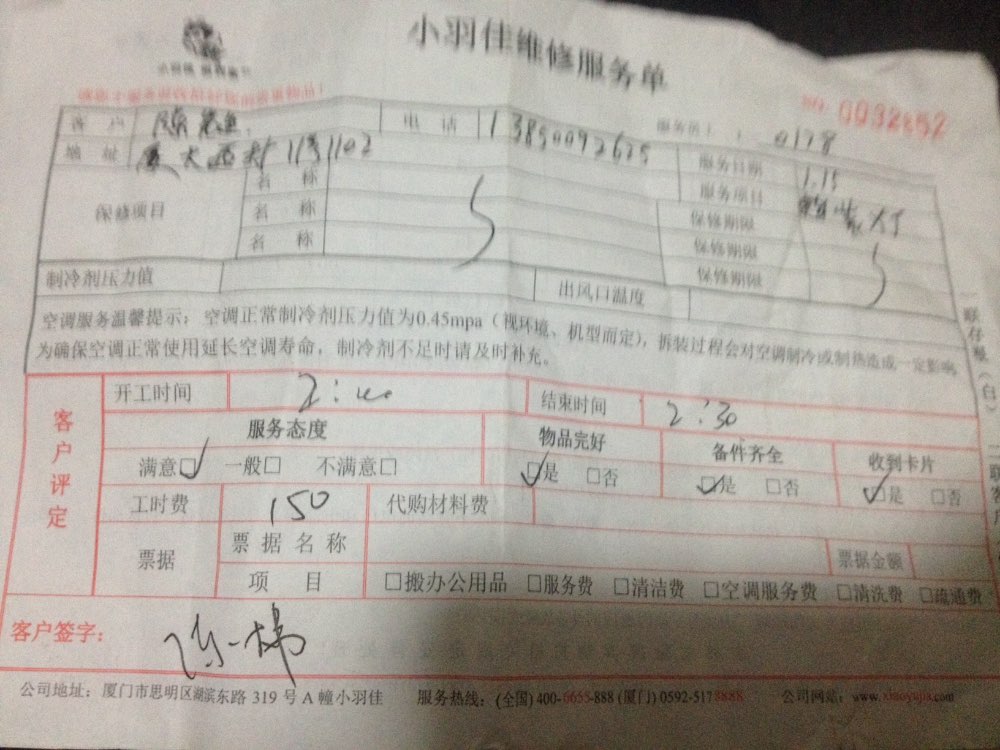 小羽佳维修服务单
NO. 0032852
客户 电话 13850092625 服务员: 0178
地址 厦大西村 11号1102 服务日期 1.15
保修项目 名称 服务项目 灯
名称 保修期限
名称 保修期限
保修期限
制冷剂压力值 出风口温度
空调服务温馨提示：空调正常制冷剂压力值为0.45mpa（视环境、机型而定），拆装过程会对空调制冷或制热造成一定影响
为确保空调正常使用延长空调寿命，制冷剂不足时请及时补充。
客户评定
开工时间 2:00 结束时间 2:30
服务态度 物品完好 备件齐全 收到卡片
满意☑ 一般□ 不满意□ ☑是 □否 ☑是 □否 ☑是 □否
工时费 150 代购材料费
票据 票据名称 票据金额
项目 □搬办公用品 □服务费 □清洁费 □空调服务费 □清洗费 □疏通费
客户签字：
公司地址：厦门市思明区湖滨东路 319 号 A 幢小羽佳 服务热线：(全国) 400-6655-888 (厦门) 0592-5178888 公司网站：www.xiaoyujia.com